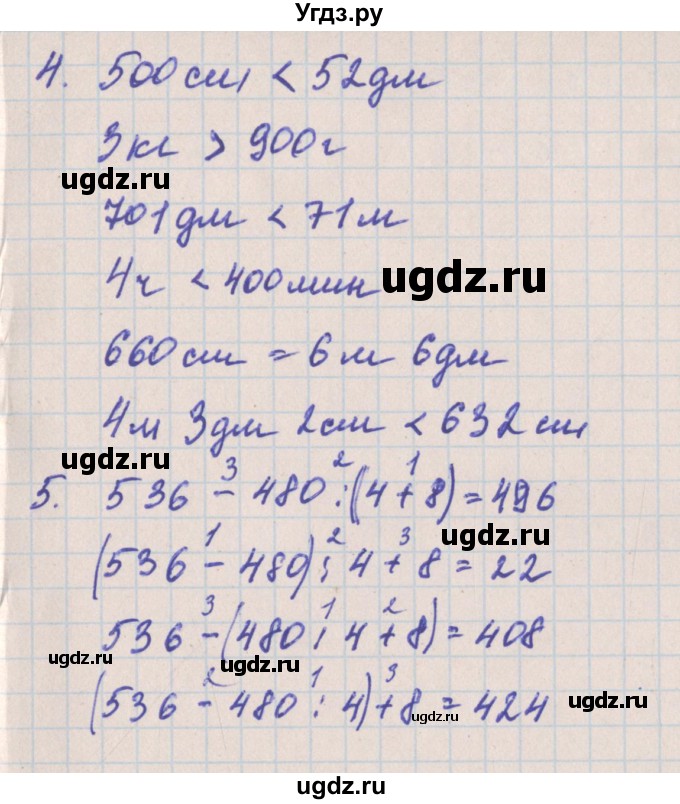 Угдз.ру
4. 500 см < 52 дм
3 кг > 900 г
ugdz.ru
701 дм < 71 м
4 ч < 400 мин
ugdz.ru
660 см = 6 м 6 дм
4 м 3 дм 2 см < 632 см
ugdz.ru
3 2 1
5. 536 - 480 : (4 + 8) = 496
ugdz.ru
1 2 3
(536 - 480) : 4 + 8 = 22
3 1 2
536 - (480 : 4 + 8) = 408
ugdz.ru
2 1 3
(536 - 480 : 4) + 8 = 424
ugdz.ru
ugdz.ru
ugdz.ru